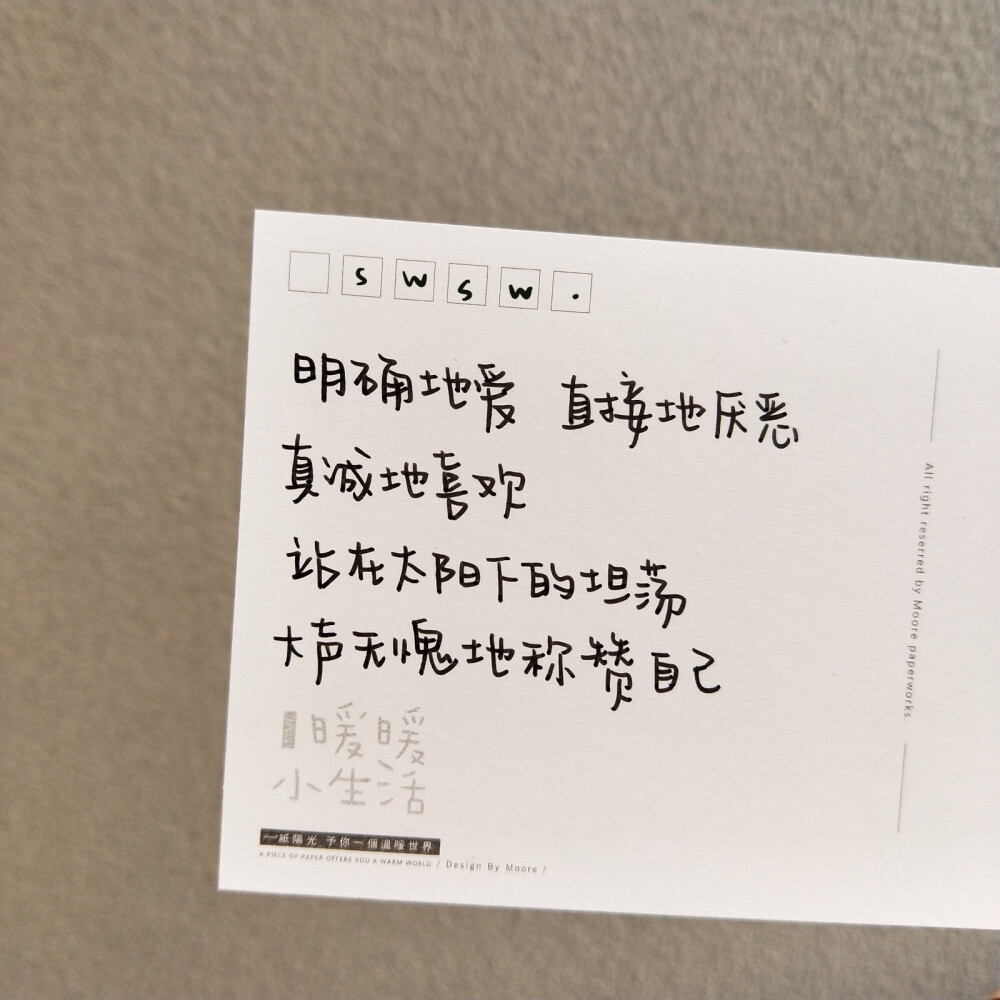 s w s w .
明确地爱 直接地厌恶
真诚地喜欢
站在太阳下的坦荡
大声无愧地称赞自己
暖暖
小生活
一紙陽光,予你一個溫暖世界
A PIECE OF PAPER OFFERS YOU A WARM WORLD / Design By Moore /
All right reserred by Moore paperworks.